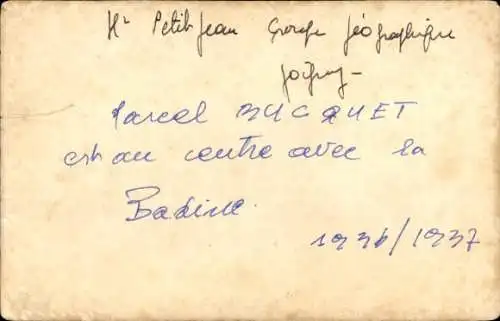 Mr Petitjean Groupe géographique
Joigny -
Marcel BUCQUET
est au centre avec la
Badine.
1936/1937